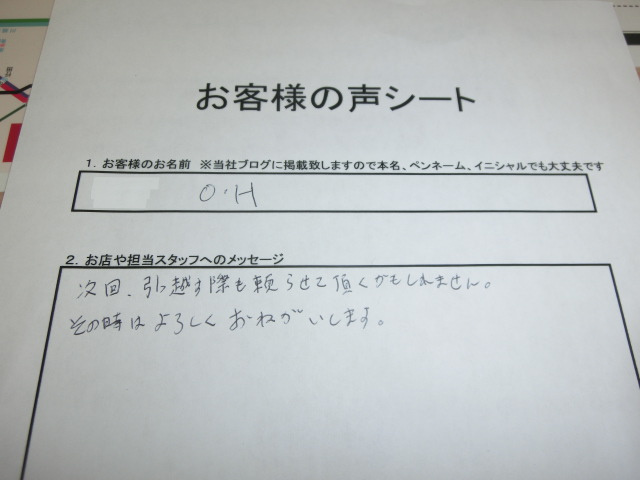 お客様の声シート
1. お客様のお名前 ※当社ブログに掲載致しますので本名、ペンネーム、イニシャルでも大丈夫です
O・H
2. お店や担当スタッフへのメッセージ
次回、引越す際も頼らせて頂くかもしれません。
その時はよろしくおねがいします。